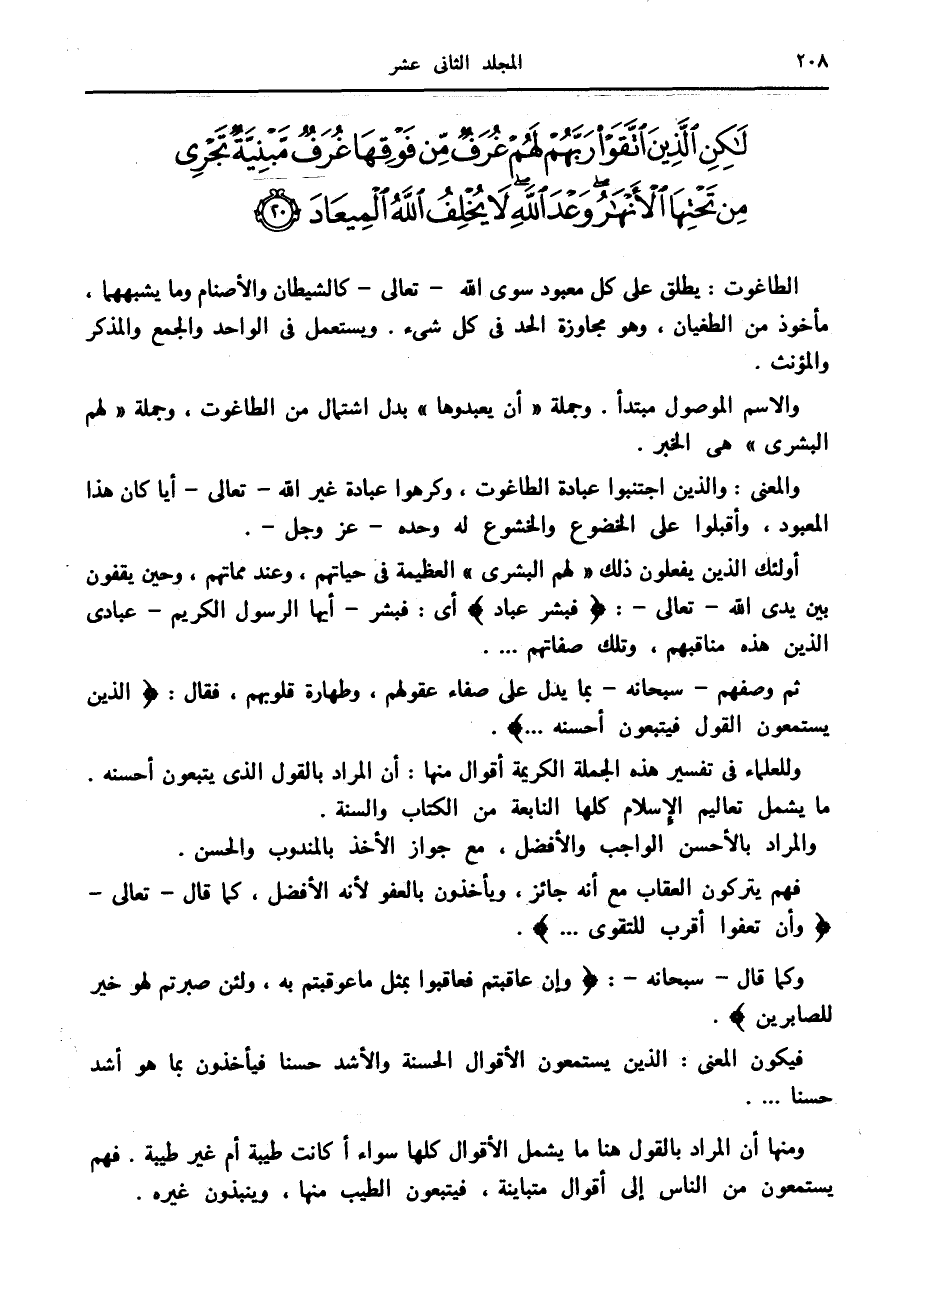 ٢٠٨ المجلد الثانى عشر
لَٰكِنِ ٱلَّذِينَ ٱتَّقَوْا۟ رَبَّهُمْ لَهُمْ غُرَفٌ مِّن فَوْقِهَا غُرَفٌ مَّبْنِيَّةٌ تَجْرِى
مِن تَحْتِهَا ٱلْأَنْهَٰرُ ۖ وَعْدَ ٱللَّهِ ۖ لَا يُخْلِفُ ٱللَّهُ ٱلْمِيعَادَ ۝٢٠
الطاغوت : يطلق على كل معبود سوى الله – تعالى – كالشيطان والأصنام وما يشبهها ،
مأخوذ من الطغيان ، وهو مجاوزة الحد فى كل شىء . ويستعمل فى الواحد والجمع والمذكر
والمؤنث .
والاسم الموصول مبتدأ . وجملة « أن يعبدوها » بدل اشتمال من الطاغوت ، وجملة « لهم
البشرى » هى الخبر .
والمعنى : والذين اجتنبوا عبادة الطاغوت ، وكرهوا عبادة غير الله – تعالى – أيا كان هذا
المعبود ، وأقبلوا على الخضوع والخشوع له وحده – عز وجل – .
أولئك الذين يفعلون ذلك « لهم البشرى » العظيمة فى حياتهم ، وعند مماتهم ، وحين يقفون
بين يدى الله – تعالى – : ﴿ فبشر عباد ﴾ أى : فبشر – أيها الرسول الكريم – عبادى
الذين هذه مناقبهم ، وتلك صفاتهم ... .
ثم وصفهم – سبحانه – بما يدل على صفاء عقولهم ، وطهارة قلوبهم ، فقال : ﴿ الذين
يستمعون القول فيتبعون أحسنه ...﴾ .
وللعلماء فى تفسير هذه الجملة الكريمة أقوال منها : أن المراد بالقول الذى يتبعون أحسنه .
ما يشمل تعاليم الإسلام كلها النابعة من الكتاب والسنة .
والمراد بالأحسن الواجب والأفضل ، مع جواز الأخذ بالمندوب والحسن .
فهم يتركون العقاب مع أنه جائز ، ويأخذون بالعفو لأنه الأفضل ، كما قال – تعالى –
﴿ وأن تعفوا أقرب للتقوى ... ﴾ .
وكما قال – سبحانه – : ﴿ وإن عاقبتم فعاقبوا بمثل ماعوقبتم به ، ولئن صبرتم لهو خير
للصابرين ﴾ .
فيكون المعنى : الذين يستمعون الأقوال الحسنة والأشد حسنا فيأخذون بما هو أشد
حسنا ... .
ومنها أن المراد بالقول هنا ما يشمل الأقوال كلها سواء أ كانت طيبة أم غير طيبة . فهم
يستمعون من الناس إلى أقوال متباينة ، فيتبعون الطيب منها ، وينبذون غيره .